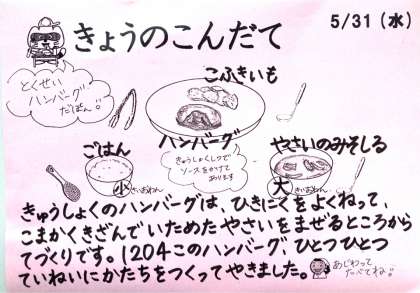 きょうのこんだて
5/31(水)
とくせい
ハンバーグ
だぽん。
こふきいも
ハンバーグ
きゅうしょくしつで
ソースをかけて
あります
ごはん
小
きいおわん
やさいのみそしる
大
きいおわん
きゅうしょくのハンバーグは、ひきにくをよくねって、
こまかくきざんでいためたやさいをまぜるところから
てづくりです。1204このハンバーグひとつひとつ
ていねいにかたちをつくってやきました。
あじわって
たべてね!!